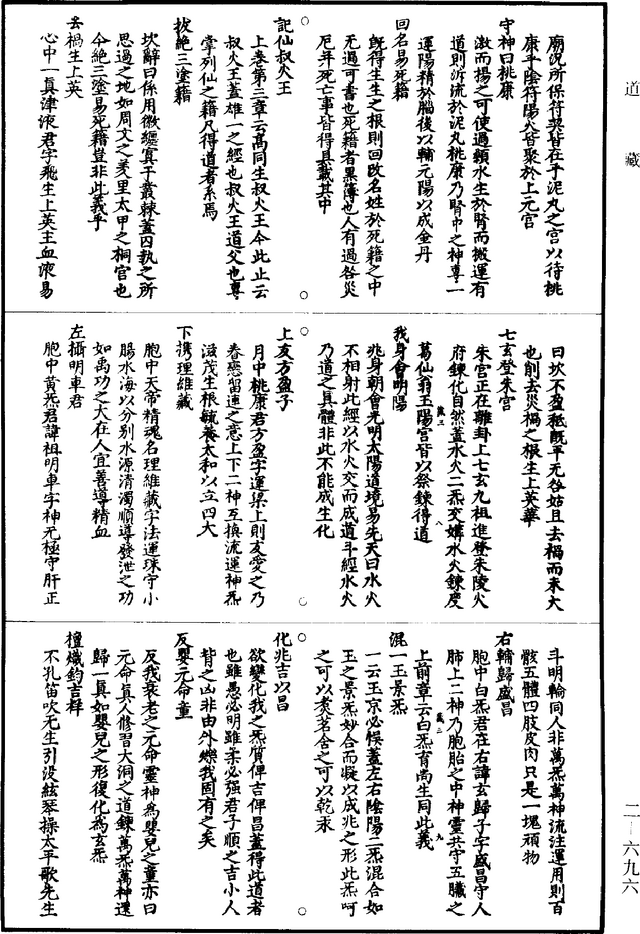 道藏
廟況所保符契皆在乎泥丸之宮以待桃
康乎陰符陽火皆聚於上元宮
守神曰桃康
激而揚之可使過顙水生於腎而搬運有
道則泝流於泥丸桃康乃腎中之神專一
運陽精於腦後以輔元陽以成金丹
回名易死籍
既得生生之根則回改名姓於死籍之中
无過可書也死籍者黑簿也人有過咎災
厄并死亡事皆得具載其中
○
記仙叔火王
上卷第三章云高同生叔火王今此止云
叔火王蓋雄一之經也叔火王道父也專
掌列仙之籍凡得道者系焉
拔絶三塗籍
坎辭曰係用徽纆寘于叢棘蓋囚執之所
思過之地如周文之羑里太甲之桐宮也
今絶三塗易死籍豈非此義乎
去禍生上英
心中一真津液君字飛生上英主血液易
曰坎不盈秪既平无咎姑且去禍而來大
也削去災禍之根生上英華
七玄登朱宮
朱宮正在離卦上七玄九祖進登朱陵火
府鍊化自然蓋水火二炁交媾水火鍊度
葛仙翁玉陽宮皆以祭鍊得道
我身會明陽
兆身朝會光明太陽道境易先天曰水火
不相射此經以水火交而成道斗經水火
乃道之具體非此不能成生化
○
上友方盈子
月中桃康君方盈字運梁上則友愛之乃
眷戀留連之意上下二神互換流運神炁
滋茂生根毓養太和以立四大
下攜理維藏
胞中天帝精魂名理維藏字法運珠守小
腸水海以分别水源清濁順導發泄之功
如禹功之大在人宜善導精血
左攝明車君
胞中黃炁君諱祖明車字神无極守肝正
斗明輪同人非萬炁萬神流注運用則百
骸五體四肢皮肉只是一塊頑物
右輔歸盛昌
胞中白炁君在右諱玄歸子字盛昌守人
肺上二神乃胞胎之中神靈共守五臟之
上前章云白炁育尚生同此義
混一玉景炁
一云玉京必悞蓋左右陰陽二炁混合如
玉之景炁妙合而凝以成兆之形此炁呵
之可以煑茗含之可以乾汞
○
化兆吉以昌
欲變化我之炁質俾吉俾昌蓋得此道者
也雖愚必明雖柔必强君子順之吉小人
背之凶非由外鑠我固有之矣
反嬰元命童
反我衰老之元命靈神爲嬰兒之童亦曰
元命真人修習大洞之道鍊萬炁萬神還
歸一真如嬰兒之形復化爲玄炁
檀熾鈞吉群
不孔笛吹无生引没絃琴操太平歌先生
二—六九六